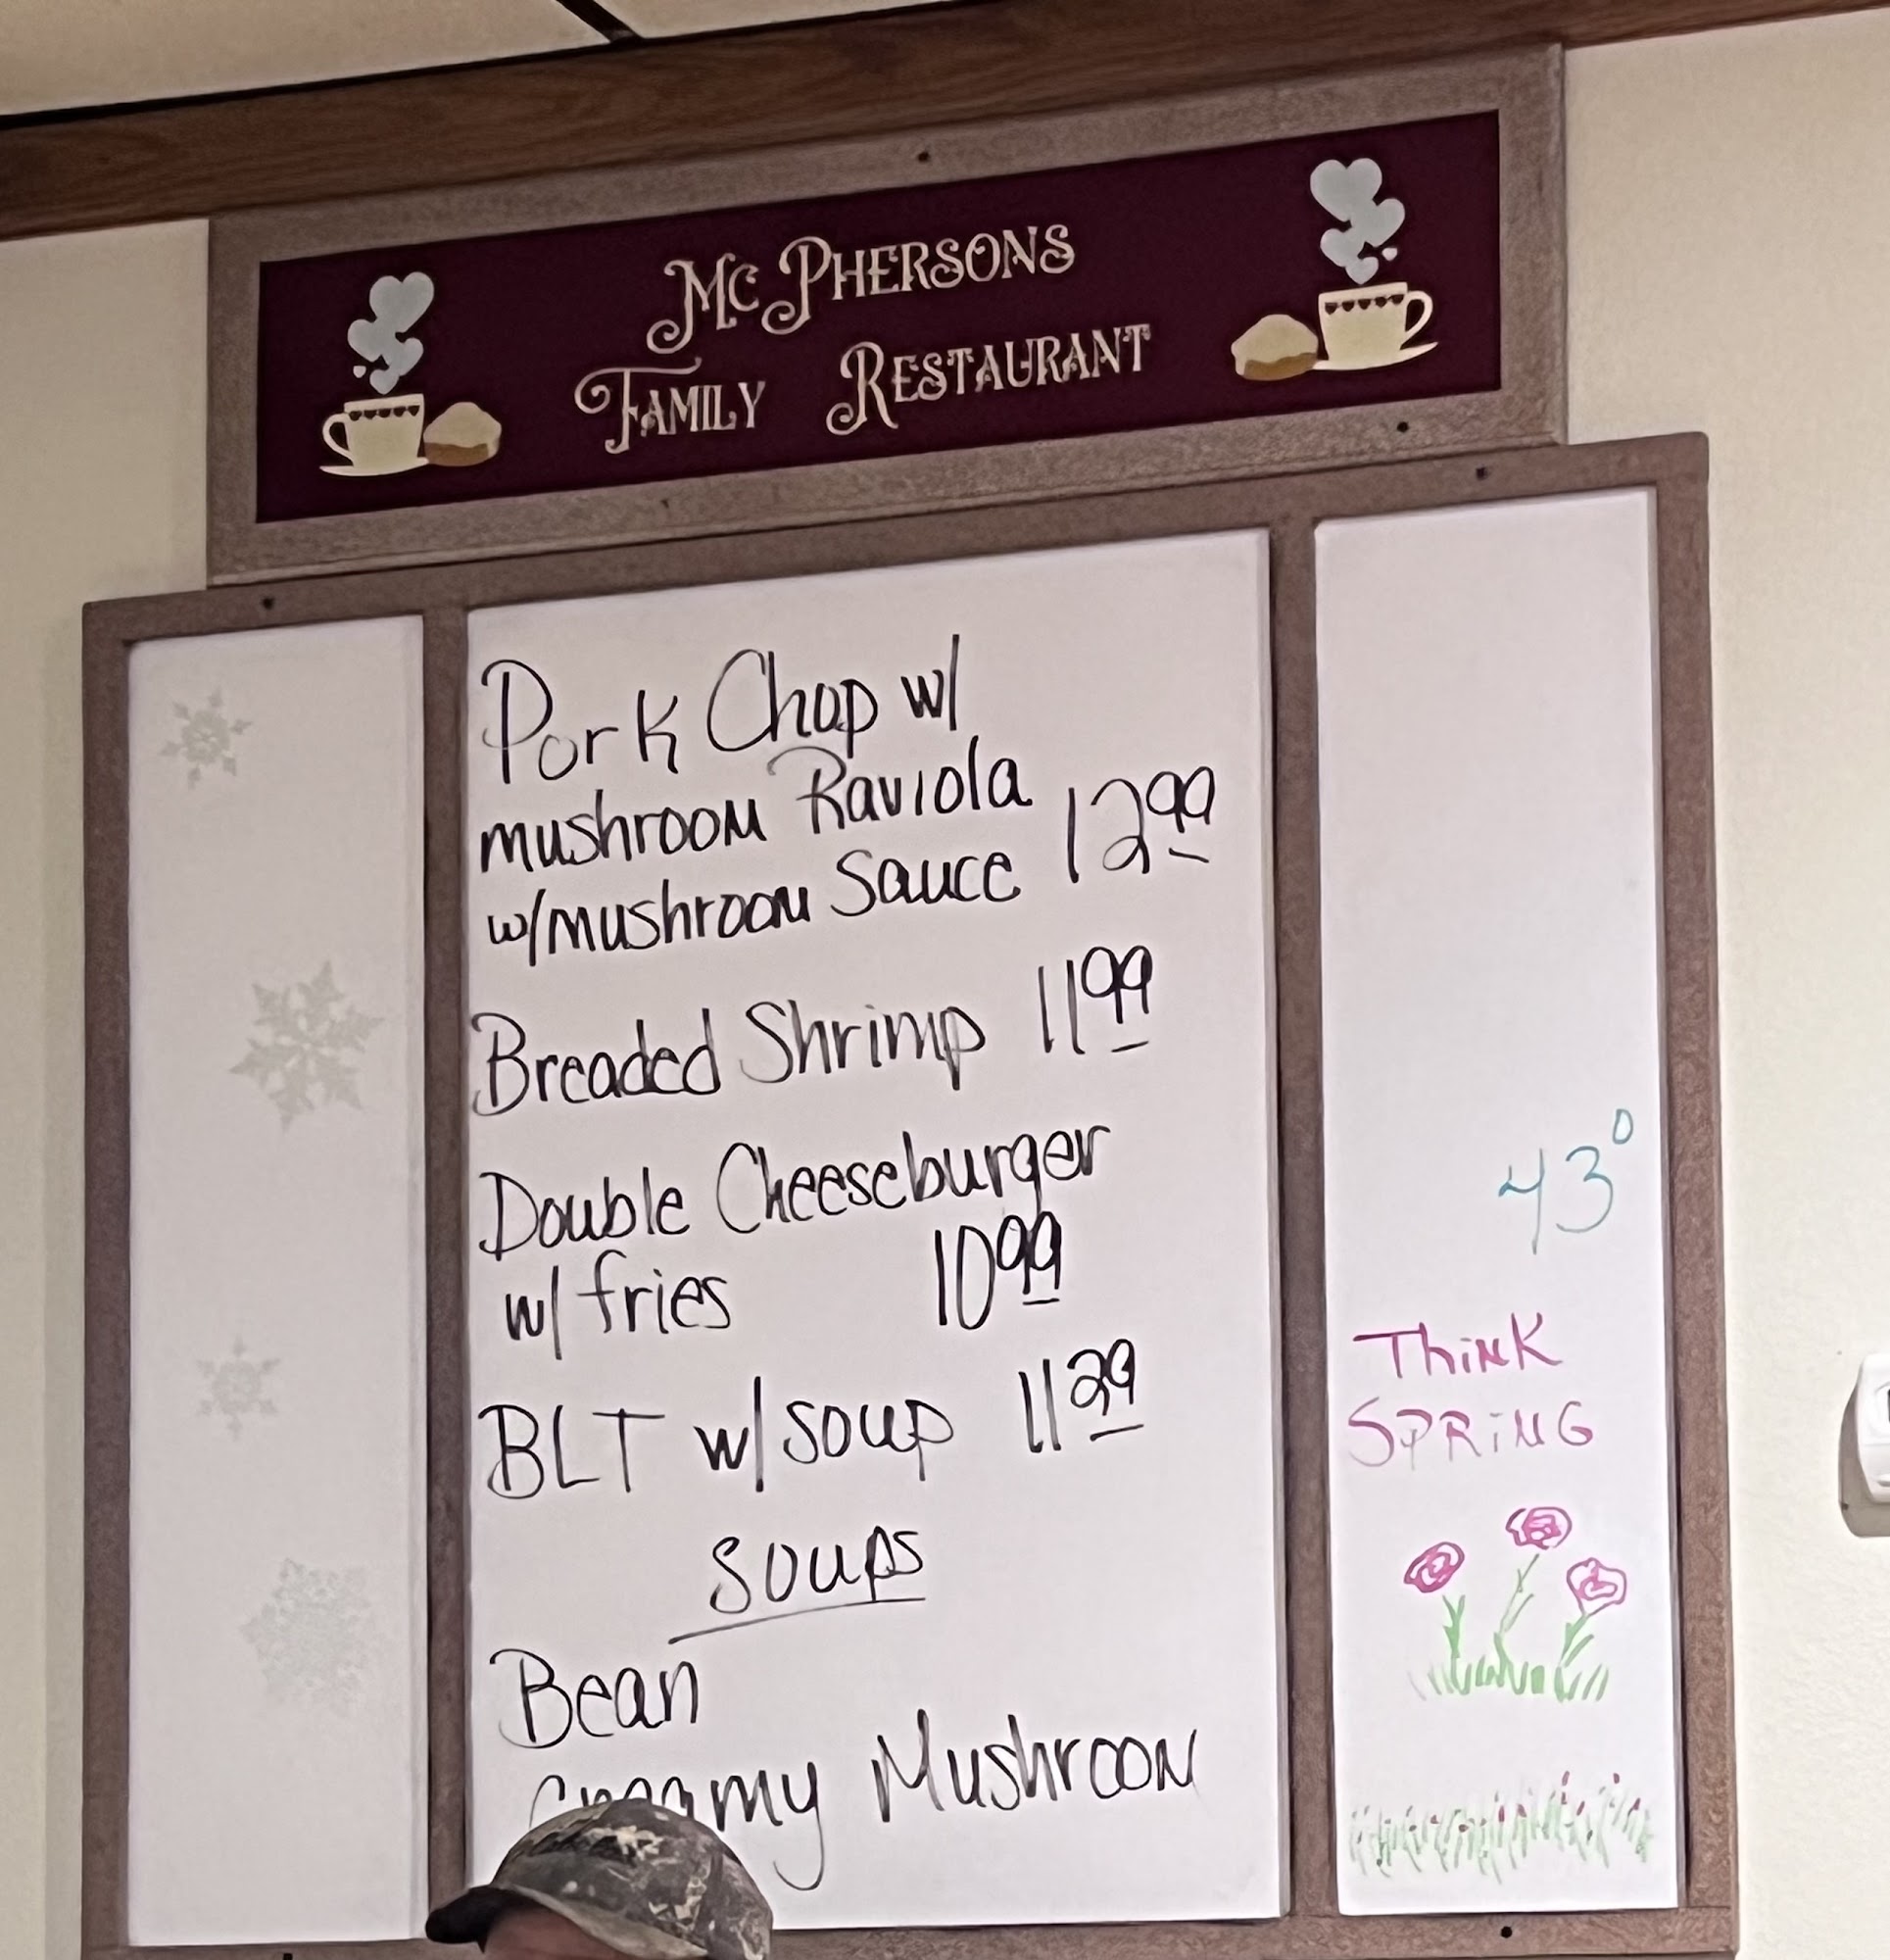 Mc Phersons
Family Restaurant
Pork Chop w/
mushroom Raviola
w/mushroom Sauce 12.99
Breaded Shrimp 11.99
Double Cheeseburger
w/ fries 10.99
BLT w/ soup 11.29
Soups
Bean
Creamy Mushroom
43°
Think
SPRiNG